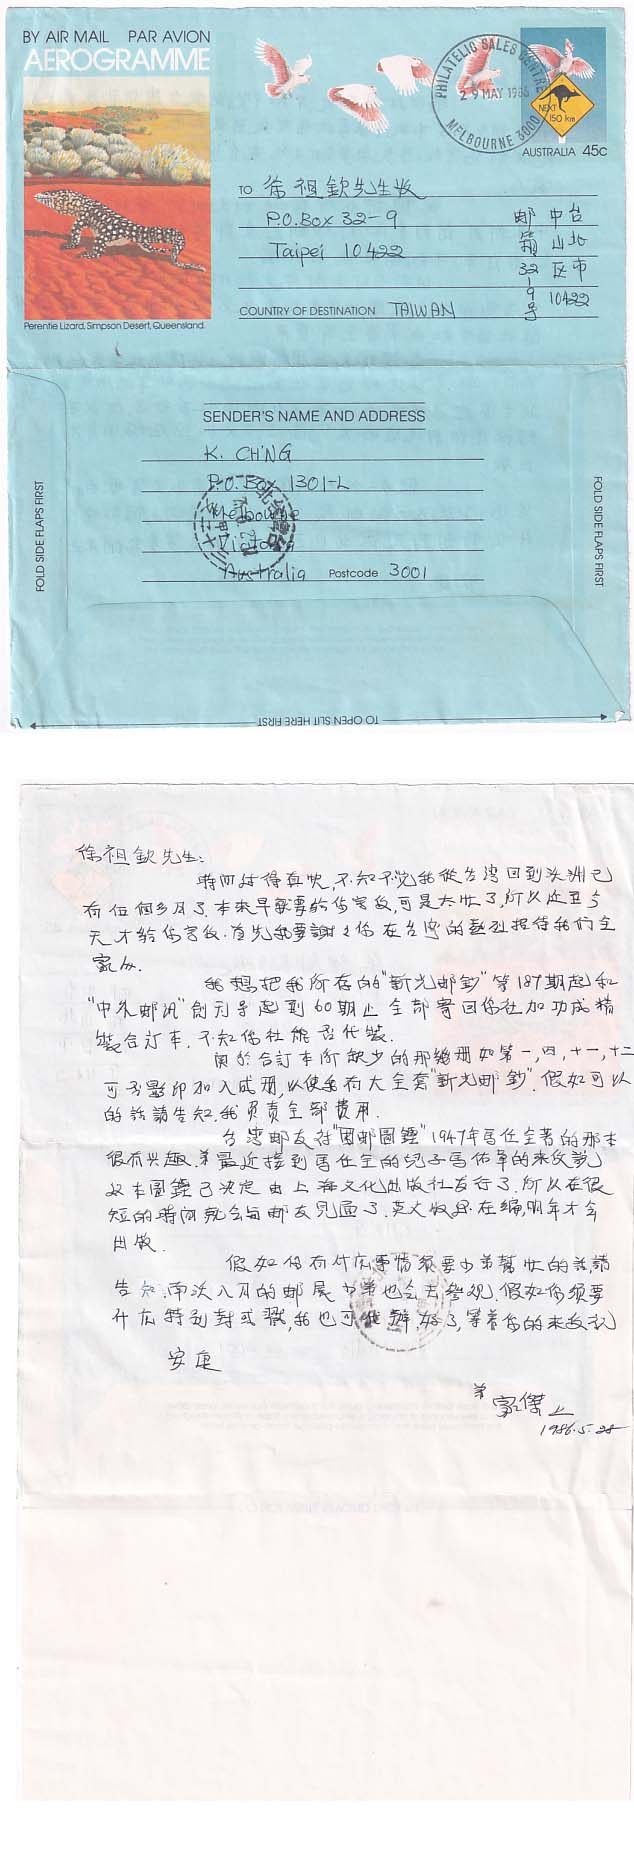 BY AIR MAIL PAR AVION
AEROGRAMME
PHILATELIC SALES CENTRE
29 MAY 1986
MELBOURNE 3000
NEXT
150 km
AUSTRALIA 45c
TO 徐祖欽先生收
P.O.Box 32-9
Taipei 10422
台北市 10422
中山区
邮箱 32-9号
COUNTRY OF DESTINATION TAIWAN
Perentie Lizard, Simpson Desert, Queensland.
SENDER'S NAME AND ADDRESS
K. CH'NG
P.O.Box 1301-L
Melbourne
Victoria
Australia Postcode 3001
FOLD SIDE FLAPS FIRST
FOLD SIDE FLAPS FIRST
TO OPEN SLIT HERE FIRST
徐祖欽先生:
時间过得真快,不知不觉我從台湾回到澳洲已
有位個多月了.本来早就要给你寫信,可是太忙了,所以迟至今
天才给你寫信.首先我要謝之你在台湾的热烈招待我们全
家人.
我想把我所存的"新光邮鈔"第187期起和
"中外邮讯"創刊号起到60期止全部寄回你社加功成精
裝合訂本.不知你社能否代裝.
関於合訂本所缺少的那幾册如第一,四,十一,十二
可否影印加入成册,以使我有大全套"新光邮鈔".假如可以
的話請告知.我负责全部費用.
台湾邮友对"国邮圖鑑"1947年馬任全著的那本
很有兴趣.弟最近接到馬任全的兒子馬佑章的来信説
这本圖鑑已决定由上海文化出版社发行了.所以在很
短的時间就会与邮友见面了.英文版还在编,明年才会
出版.
假如你有什広事情须要小弟幫忙的話請
告知.南次八月的邮展小弟也会去参观.假如你须要
什広特别封或戳,我也可代辦.好了,等着你的来信祝
安康
弟
家傑上
1986.5.28